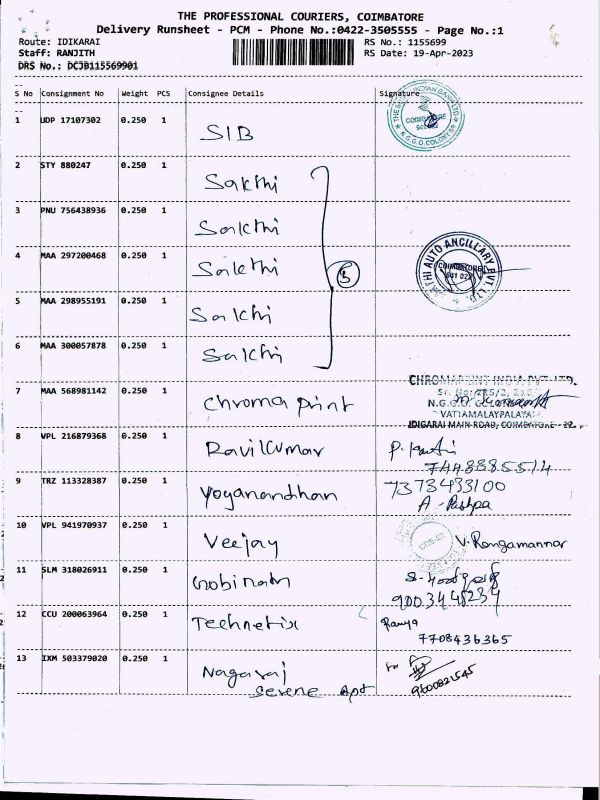 THE PROFESSIONAL COURIERS, COIMBATORE
Delivery Runsheet - PCM - Phone No.:0422-3505555 - Page No.:1
Route: IDIKARAI RS No.: 1155699
Staff: RANJITH RS Date: 19-Apr-2023
DRS No.: DCJB115569901
S No Consignment No Weight PCS Consignee Details Signature
1 UDP 17107302 0.250 1 SIB
COIMBATORE
K.G.G.O. COLONY
2 STY 880247 0.250 1 Sakthi
3 PNU 756438936 0.250 1 Sakthi
4 MAA 297200468 0.250 1 Sakthi
5 MAA 298955191 0.250 1 Sakthi
6 MAA 300057878 0.250 1 Sakthi
5
AUTO ANCILLARY PVT. LTD.
COIMBATORE
641 022
7 MAA 568981142 0.250 1 Chroma print
CHROMAPRINT INDIA PVT. LTD.
VATTAMALAYPALAYAM
IDIGARAI MAIN ROAD, COIMBATORE - 22.
8 VPL 216879368 0.250 1 Ravilkumar
7448885514
9 TRZ 113328387 0.250 1 Yoganandhan 7373433100
A - Pushpa
10 VPL 941970937 0.250 1 Veejay V. Rangamannar
11 SLM 318026911 0.250 1 Gobinath
9003448234
12 CCU 200063964 0.250 1 Technetix Ramya
7708436365
13 IXM 503379020 0.250 1 Nagaraj for
Serene Apt 9600821545